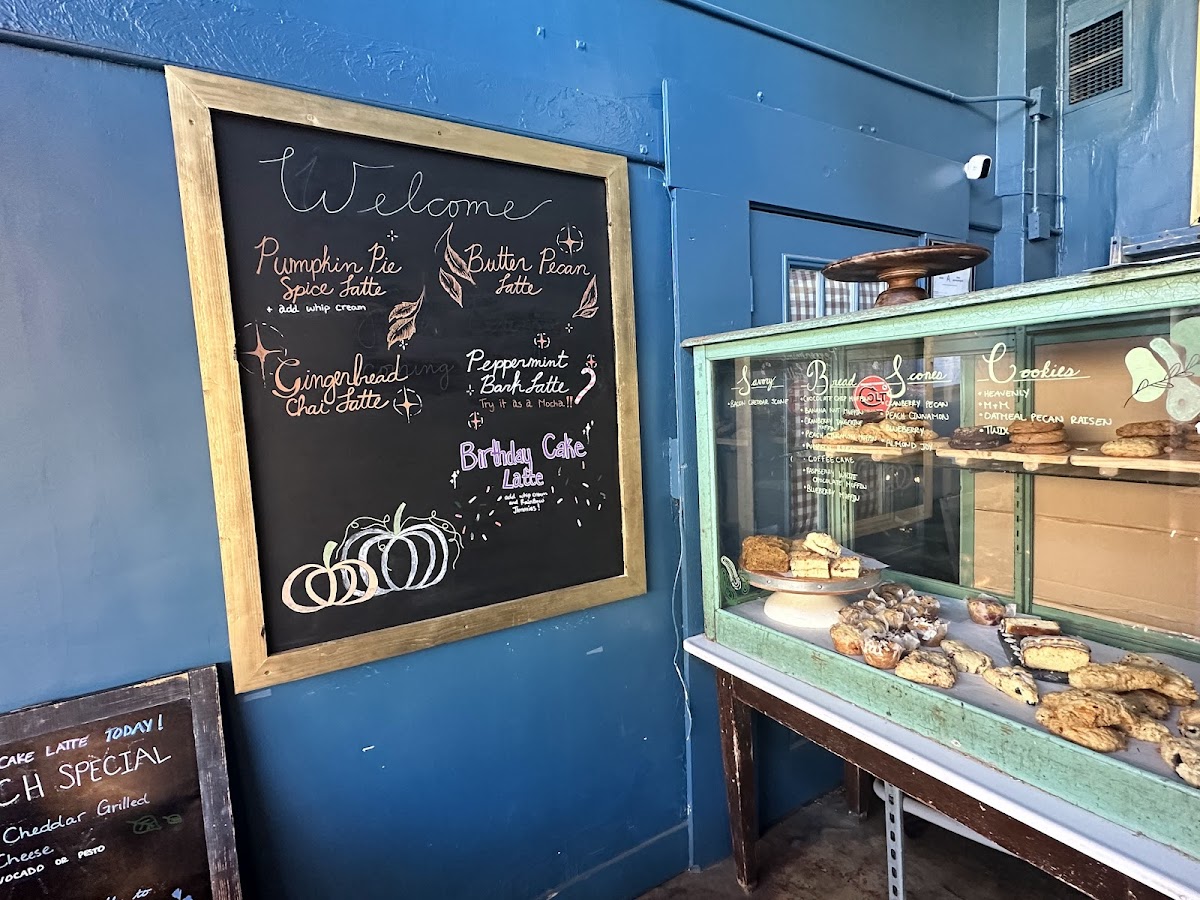 Welcome
Pumpkin Pie
Spice Latte
+ add whip cream
Butter Pecan
Latte
Gingerbread
Chai Latte
Peppermint
Bark Latte
Try it as a Mocha!!
Birthday Cake
Latte
add whip cream
and Rainbow
Jimmies!
CAKE LATTE TODAY!
CH SPECIAL
Cheddar Grilled
Cheese
VOCADO OR PESTO
Savory
• BACON CHEDDAR SCONE
Bread
• CHOCOLATE CHIP MUFFIN
• BANANA NUT MUFFIN
• CRANBERRY TANGERINE
MUFFIN
• PEACH CINNAMON
• COFFEE CAKE
• RASPBERRY WHITE
CHOCOLATE MUFFIN
• BLUEBERRY MUFFIN
COLT
Scones
CRANBERRY PECAN
PEACH CINNAMON
BLUEBERRY
ALMOND JOY
Cookies
• HEAVENLY
• M+M
• OATMEAL PECAN RAISEN
• TWIX